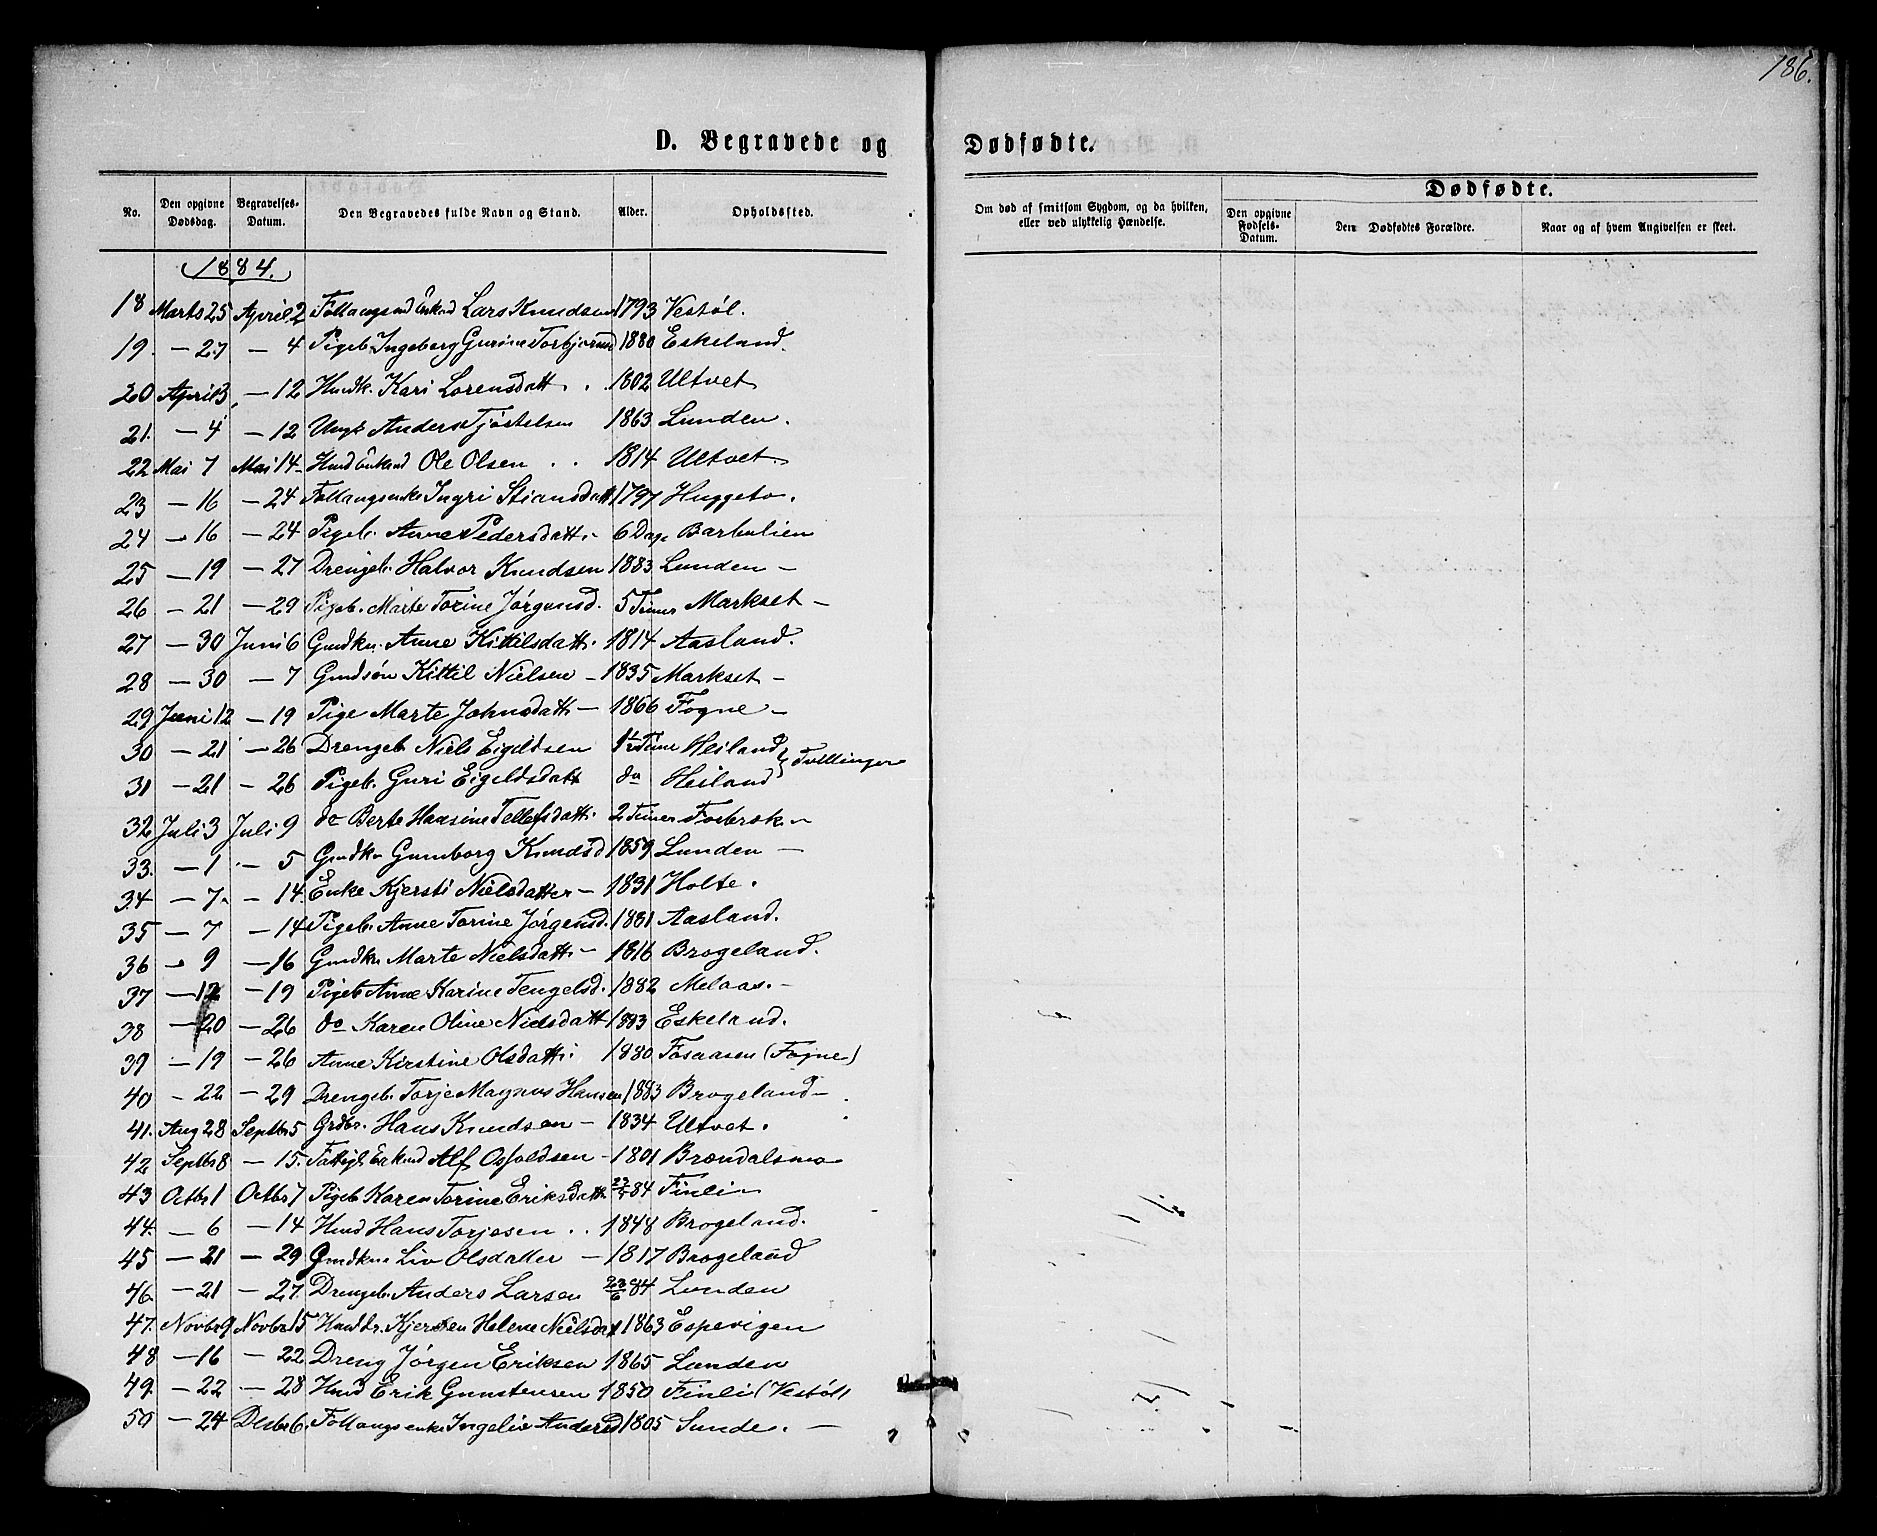 186.
D. Begravede og Dødfødte.
No. Den opgivne Dødsdag. Begravelses-Datum. Den Begravedes fulde Navn og Stand. Alder. Opholdssted. Om død af smitsom Sygdom, og da hvilken, eller ved ulykkelig Hændelse. Dødfødte. Den opgivne Fødsels-Datum. Den Dødfødtes Forældre. Naar og af hvem Angivelsen er skeet.
1884.
18 Marts 25 April 2 Lars Knudsen 1793 Vestøl.
19. — 27 — 4 Pigeb. Ingeborg Gurine Torbjørnsd 1880 Eskeland.
20 April 3, — 12 Hmdk. Kari Lorensdatt. . 1802 Ultvet
21. — 4 — 12 Ungk Anders Tjøstelsen 1863 Lunden.
22 Mai 7 Mai 14 — Hmd Enkmd Ole Olsen . . 1814 Ultvet.
23 — 16 — 24 Follaugsenke Ingri Stiansdatt 1797 Huggeto.
24 — 16 — 24 Pigeb. Anne Pedersdatt. — 6 Dage Barbulien
25 — 19 — 27 Drengeb. Halvor Knudsen 1883 Lunden —
26 — 21 — 29 Pigeb. Marte Torine Jørgensd. 5 Timer Markset —
27 — 30 Juni 6 Gmdkn. Anne Kittilsdatt. 1814 Aasland.
28 — 30 — 7 Gmdsøn Kittil Nielsen — 1835 Markset —
29 Juni 12 — 19 Pige Marte Johnsdatt — 1866 Fogne —
30 — 21 — 26 Drengeb. Niels Eigeldsen 1½ Time Heiland } Tvillinger
31 — 21 — 26 Pigeb. Guri Eigeldsdatt do Heiland
32 Juli 3 Juli 9 do Berte Hansine Tellefsdatt. 2 Timer Fosbræk —
33. — 1 — 5 Gmdkn Gunborg Knudsd 1859 Lunden —
34 — 7. — 14. Enke Kjersti Nielsdatter — 1831 Holte.
35 — 7 — 14 Pigeb. Anne Torine Jørgensd. 1881 Aasland.
36 — 9 — 16 Gmdkn Marte Nielsdatt. — 1816 Brogeland.
37 — 12 — 19 Pigeb Anne Karine Tengelsd. 1882 Melaas. —
38 — 20 — 26 do Karen Oline Nielsdatt 1883 Eskeland.
39 — 19 — 26 Anne Kirstine Olsdatt. 1880 Fosaasen (Fogne)
40 — 22 — 29 Drengeb. Torje Magnus Hansen 1883 Brogeland —
41. Aug 28 Septbr 5 Grdbr. Hans Knudsen — 1834 Ultvet.
42 Septbr 8 — 15. Fattigl. Enkmd Alf Osfoldsen — 1801 Brændalsmo
43 Octbr 1 Octbr 7 Pigeb Karen Torine Eriksdatt 84 Finli —
44. — 6 — 14 Hmd Hans Torjesen . . 1848 Brogeland.
45 — 21 — 29 Gmdkn Liv Olsdatter — 1817 Brogeland
46. — 21 — 27. Drengeb. Anders Larsen 23/6 84 Lunden
47. Novbr 9 Novbr 15 Kjersten Helene Nielsdat 1863 Espevigen
48 — 16 — 22 Dreng Jørgen Eriksen 1865 Lunden
49. — 22 — 28 Hmd Erik Gunstensen 1850 Finli (Vestøl)
50 — 24 Decbr 6. Follaugsenke Ingelie Andersd 1805 Sunde. —